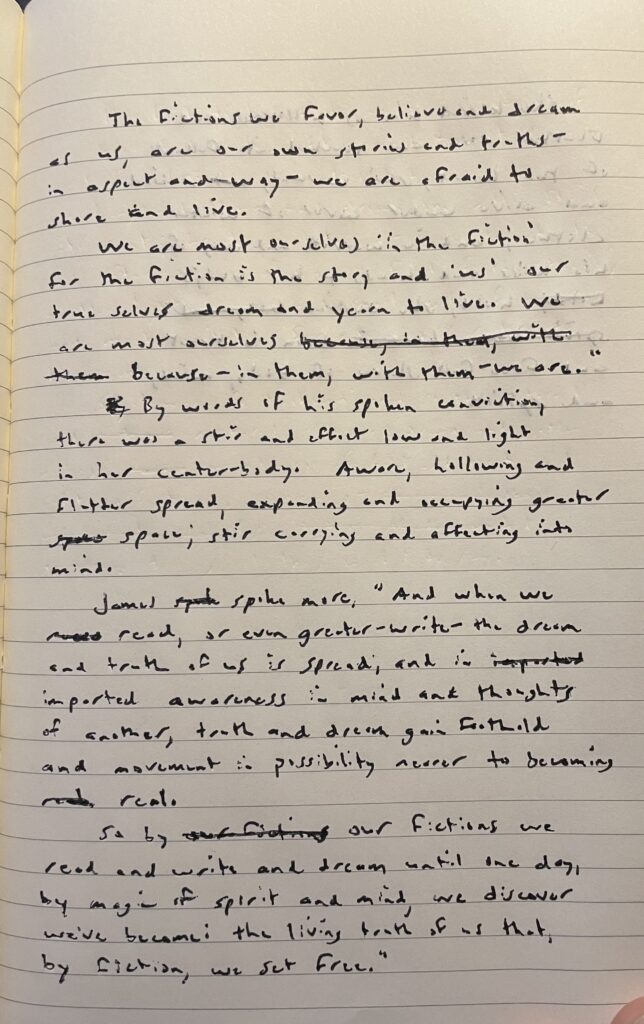 The fictions we favor, believe and dream
as us, are our own stories and truths-
in aspect and-way- we are afraid to
share and live.
We are most ourselves in the fiction
for the fiction is the story and our
true selves dream and yearn to live. We
are most ourselves because, in them, with
them because-in them, with them-we are."
By words of his spoken conviction,
there was a stir and effect low and light
in her center-body. Aware, hollowing and
flutter spread, expanding and occupying greater
space; stir carrying and affecting into
mind.
James spoke more, "And when we
read, or even greater-write- the dream
and truth of us is spread; and in imported
imported awareness in mind and thoughts
of another, truth and dream gain foothold
and movement in possibility nearer to becoming
real.
So by our fictions our fictions we
read and write and dream until one day,
by magic of spirit and mind, we discover
we've become: the living truth of us that,
by fiction, we set free."